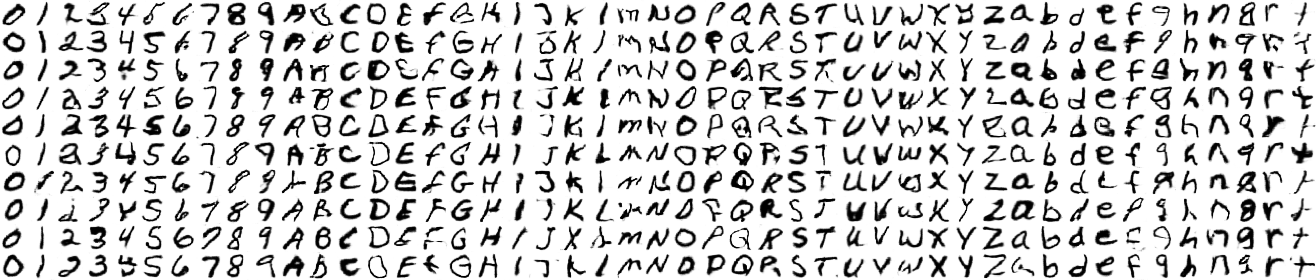 0 1 2 3 4 5 6 7 8 9 A B C D E F G H I J K l m N O P Q R S T U V W X Y Z a b d e f g h n g r t
0 1 2 3 4 5 6 7 8 9 A B C D E f G H I J K l m N O P Q R S T U V W X Y Z a b d e f g h n q r t
0 1 2 3 4 5 6 7 8 9 A B C D E F G H I J K l m N O P Q R S T U V W X Y Z a b d e f g h n q r t
0 1 2 3 4 5 6 7 8 9 A B C D E F G H I J K l m N O P Q R S T U V W X Y Z a b d e f g h n q r t
0 1 2 3 4 5 6 7 8 9 A B C D E F G H I J K l m N O P Q R S T U V W X Y Z a b d e f g h n q r t
0 1 2 3 4 5 6 7 8 9 A B C D E f G H I J K L m N O P Q R S T U V W X Y Z a b d e f g h n q r t
0 1 2 3 4 5 6 7 8 9 A B C D E f G H I J K l m N O P Q R S T U V W X Y Z a b d e f g h n q r t
0 1 2 3 4 5 6 7 8 9 A B C D E F G H I J K L m N O P Q R S T U V W X Y Z a b d e f g h n q r t
0 1 2 3 4 5 6 7 8 9 A B C D E F G H I J K L m N O P Q R S T U V W X Y Z a b d e f g h n g r t
0 1 2 3 4 5 6 7 8 9 A B C D E F G H I J K L M N O P Q R S T U V W X Y Z a b d e f g h n q r t